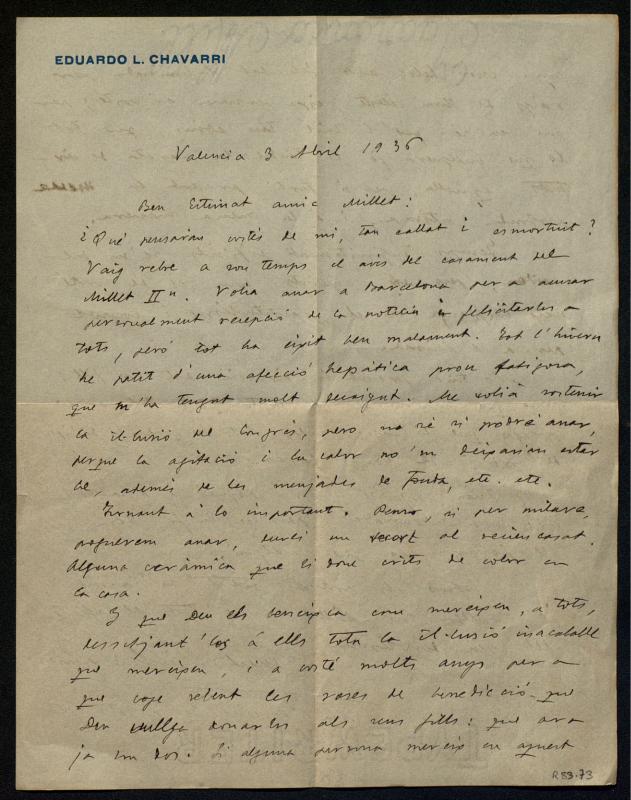 EDUARDO L. CHAVARRI
Valencia 3 Abril 1936
Ben Estimat amic Millet:
¿Qué pensarán vostés de mi, tan callat i esmortuit?
Vaig rebre a sou temps el avis del casament del
Millet IIn. Volia anar a Barcelona per a acusar
personalment recepció de la noticia i felicitarlos a
tots, peró tot ha eixit ben malament. Tot l'hivern
he patit d'una afecció hepàtica prou fatigosa,
que m'ha tengut molt desaigut. Me volia sostenir
la il·lusió del Congrés, pero no sé si podré anar,
perque la agitació i la calor no'm deixarian estar
bé, ademés de les menjades de fonda, etc. etc.
Tornant á lo important. Penso, si per milacre,
poguerem anar, durli un recort al reciencasat.
Alguna cerámica que li done crits de color en
la casa.
I que Deu els beneixca com mereixen, a tots,
dessitjant los á ells tota la il·lusió inacabable
que mereixen, i a vosté molts anys per a
que vaja rebent les roses de benedicció que
Deu vullga donarles als seus fills: que ara
ja son dos. Si alguna persona mereix en aquest
R 83-73